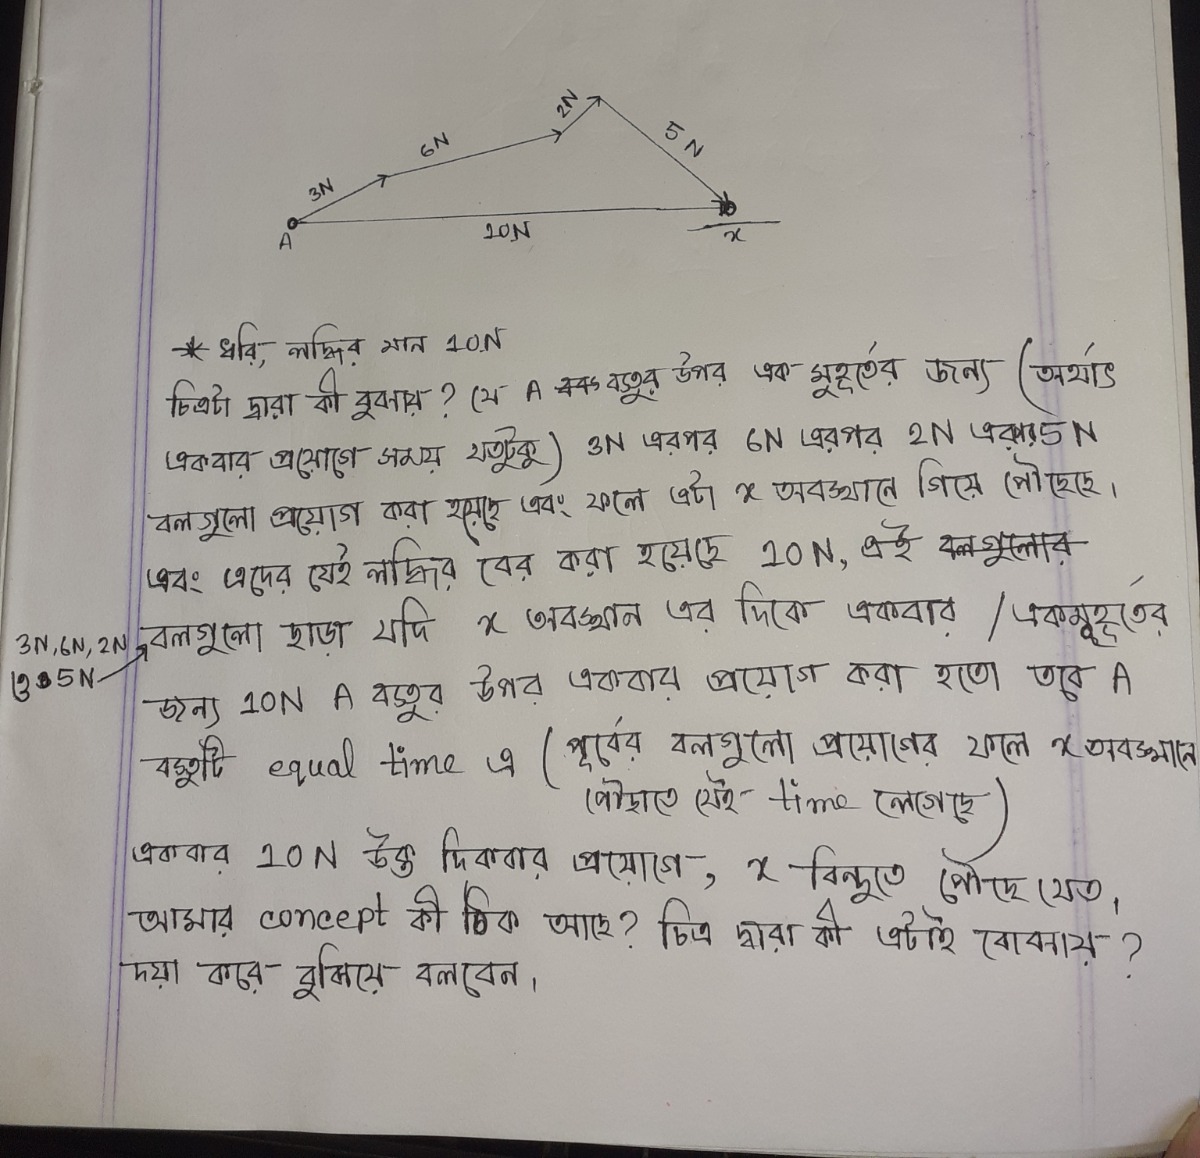 3N
6N
2N
5N
A
10N
x
* ধরি, লব্ধির মান 10N
চিত্রটা দ্বারা কী বুঝায়? যে A বস্তুর উপর এক মুহূর্তের জন্য (অর্থাৎ
একবার প্রয়োগে সময় যতটুকু) 3N এরপর 6N এরপর 2N এরপর 5N
বলগুলো প্রয়োগ করা হয়েছে এবং ফলে এটা x অবস্থানে গিয়ে পৌছেছে।
এবং এদের যেই লব্ধির বের করা হয়েছে 10N, এই বলগুলোর
3N, 6N, 2N ও 5N
বলগুলো ছাড়া যদি x অবস্থান এর দিকে একবার / একমুহূর্তের
জন্য 10N A বস্তুর উপর একবার প্রয়োগ করা হতো তবে A
বস্তুটি equal time এ (পূর্বের বলগুলো প্রয়োগের ফলে x অবস্থানে
পৌছাতে যেই time লেগেছে)
একবার 10N উক্ত দিকবার প্রয়োগে, x বিন্দুতে পৌছে যেত।
আমার concept কী ঠিক আছে? চিত্র দ্বারা কী এটাই বোঝায়?
দয়া করে বুঝিয়ে বলবেন।